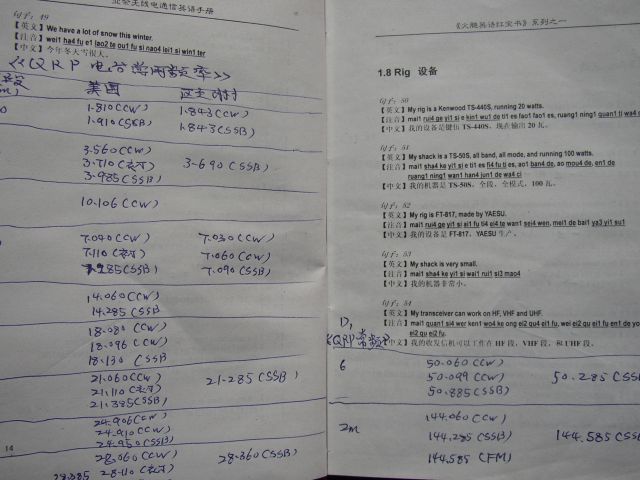 业余无线电通信英语手册
句子: 49
【英文】We have a lot of snow this winter.
【注音】wei1 ha4 fu e1 lao2 te ou1 fu si nao4 lei1 si win1 ter
【中文】今年冬天雪很大。
《QRP电台常用频率》
美国
1.810(CW) 1.843(CW)
1.910(SSB) 1.843(SSB)
3.560(CW)
3.710 3.690(SSB)
3.985(SSB)
10.106(CW)
7.040(CW) 7.030(CW)
7.110 7.060(CW)
7.285(SSB) 7.090(SSB)
14.060(CW)
14.285(SSB)
18.080(CW)
18.096(CW)
18.130(SSB)
21.060(CW) 21.285(SSB)
21.110
21.385(SSB)
24.906(CW)
24.910(CW)
24.950(SSB)
28.060(CW) 28.360(SSB)
28.385 28.110
14
《火腿英语红宝书》系列之一
1.8 Rig 设备
句子: 50
【英文】My rig is a Kenwood TS-440S, running 20 watts.
【注音】mai1 rui4 ge yi1 si e kin1 wu1 de ti1 es fao1 fao1 es, ruang1 ning1 quan1 ti wa4
【中文】我的设备是健伍 TS-440S，现在输出 20 瓦。
句子: 51
【英文】My shack is a TS-50S, all band, all mode, and running 100 watts.
【注音】mai1 sha4 ke yi1 si e ti1 es fi4 fu ti es, ao1 ban4 de, ao mou4 de, en1 de
ruang1 ning1 wan1 han4 jun1 de wa4 ci
【中文】我的机器是 TS-50S，全段，全模式，100 瓦。
句子: 52
【英文】My rig is FT-817, made by YAESU.
【注音】mai1 rui4 ge yi1 si ai1 fu ti4 ei4 te wan1 sei4 wen, mei1 de bai1 ya3 yi1 su1
【中文】我的设备是 FT-817，YAESU 生产。
句子: 53
【英文】My shack is very small.
【注音】mai1 sha4 ke yi1 si wai1 rui1 si3 mao4
【中文】我的机器非常小。
句子: 54
【英文】My transceiver can work on HF, VHF and UHF.
【注音】mai1 quan1 si4 wer ken1 wo4 ke ong ei2 qu4 ei1 fu, wei ei2 qu ei1 fu en1 de yo
ei2 qu ei2 fu.
【中文】我的收发信机可以工作在 HF 段，VHF 段，和 UHF 段。
6 50.060(CW)
50.099(CW) 50.285(SSB)
50.885(SSB)
2m 144.060(CW)
144.285(SSB) 144.585(SSB)
144.585(FM)